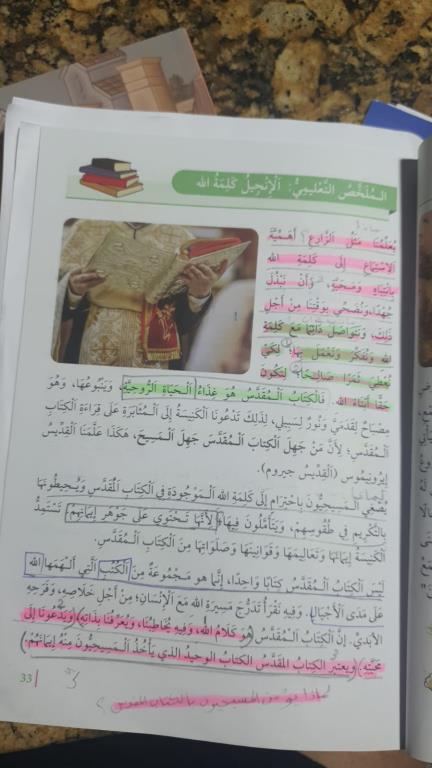 الْمُلَخَّصُ التَّعْلِيمِيُّ: اَلْإِنْجِيلُ كَلِمَةُ الله
يُعَلِّمُنَا مَثَلُ الزَّارِعِ أَهَمِّيَّةَ
الِاسْتِمَاعِ إِلَى كَلِمَةِ اللهِ
بِانْتِبَاهٍ وَمَحَبَّةٍ، وَأَنْ نَبْذُلَ
جُهْدًا، وَنُضَحِّيَ بِوَقْتِنَا مِنْ أَجْلِ
ذَلِكَ، وَنَتَوَاصَلَ دَائِمًا مَعَ كَلِمَةِ
اللهِ وَنُفَكِّرَ وَنَعْمَلَ بِهَا؛ لِكَيْ
نُعْطِيَ ثَمَرًا صَالِحًا، لِنَكُونَ
حَقًّا أَبْنَاءَ اللهِ. فَالْكِتَابُ الْمُقَدَّسُ هُوَ غِذَاءُ الْحَيَاةِ الرُّوحِيَّةِ، وَيَنْبُوعُهَا، وَهُوَ
مِصْبَاحٌ لِقَدَمَيَّ وَنُورٌ لِسَبِيلِي، لِذَلِكَ تَدْعُونَا الْكَنِيسَةُ إِلَى الْمُثَابَرَةِ عَلَى قِرَاءَةِ الْكِتَابِ
الْمُقَدَّسِ؛ لِأَنَّ مَنْ جَهِلَ الْكِتَابَ الْمُقَدَّسَ جَهِلَ الْمَسِيحَ، هَكَذَا عَلَّمَنَا الْقِدِّيسُ
إِيرُونِيمُوس (اَلْقِدِّيسُ جيروم).
يُصْغِي الْمَسِيحِيُّونَ بِاحْتِرَامٍ إِلَى كَلِمَةِ اللهِ الْمَوْجُودَةِ فِي الْكِتَابِ الْمُقَدَّسِ وَيُحِيطُونَهَا
بِالتَّكْرِيمِ فِي طُقُوسِهِمْ، وَيَتَأَمَّلُونَ فِيهَا؛ لِأَنَّهَا تَحْتَوِي عَلَى جَوْهَرِ إِيمَانِهِمْ. تَسْتَمِدُّ
الْكَنِيسَةُ إِيمَانَهَا وَتَعَالِيمَهَا وَقَوَانِينَهَا وَصَلَوَاتِهَا مِنَ الْكِتَابِ الْمُقَدَّسِ.
لَيْسَ الْكِتَابُ الْمُقَدَّسُ كِتَابًا وَاحِدًا، إِنَّمَا هُوَ مَجْمُوعَةٌ مِنَ الْكُتُبِ الَّتِي أَلْهَمَهَا اللهُ
عَلَى مَدَى الْأَجْيَالِ. وَفِيهِ نَقْرَأُ تَدَرُّجَ مَسِيرَةِ اللهِ مَعَ الْإِنْسَانِ؛ مِنْ أَجْلِ خَلَاصِهِ، وَفَرَحِهِ
الْأَبَدِيِّ. إِنَّ الْكِتَابَ الْمُقَدَّسَ هُوَ كَلَامُ اللهِ، وَفِيهِ يُخَاطِبُنَا، وَيُعَرِّفُنَا بِذَاتِهِ وَيَدْعُونَا إِلَى
مَحَبَّتِهِ وَيُعْتَبَرُ الْكِتَابُ الْمُقَدَّسُ الْكِتَابَ الْوَحِيدَ الَّذِي يَأْخُذُ الْمَسِيحِيُّونَ مِنْهُ إِيمَانَهُمْ.
33